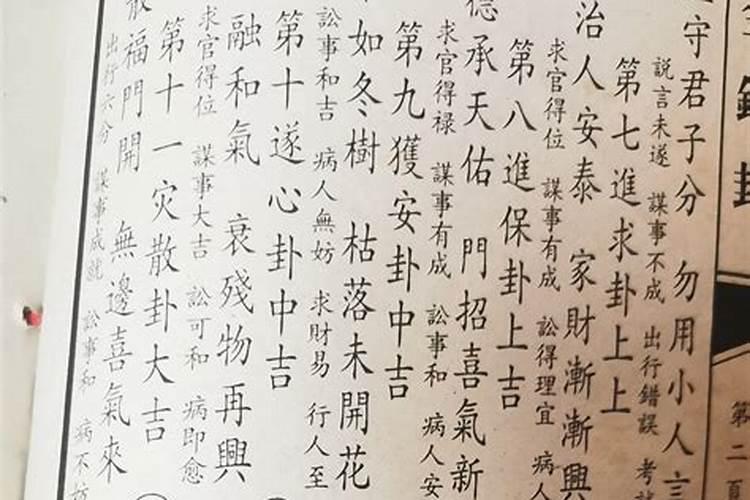 守君子分 勿用小人言
説言未遂 謀事不成 出行錯誤 考
第七進求卦上上
治人安泰 家財漸漸興
求官得位 謀事有成 訟得理宜 病人
第八進保卦上吉
承天佑 門招喜氣新
求官得禄 謀事有成 訟事和 病人安
第九獲安卦中吉
如冬樹 枯落未開花
訟事和吉 病人無妨 求財易 行人至
第十遂心卦中吉
融和氣 衰殘物再興
求官得位 謀事大吉 訟可和 病即愈
第十一灾散卦大吉
福門開 無邊喜氣來
出行六分 謀事成就 訟事和 病不妨
第二百